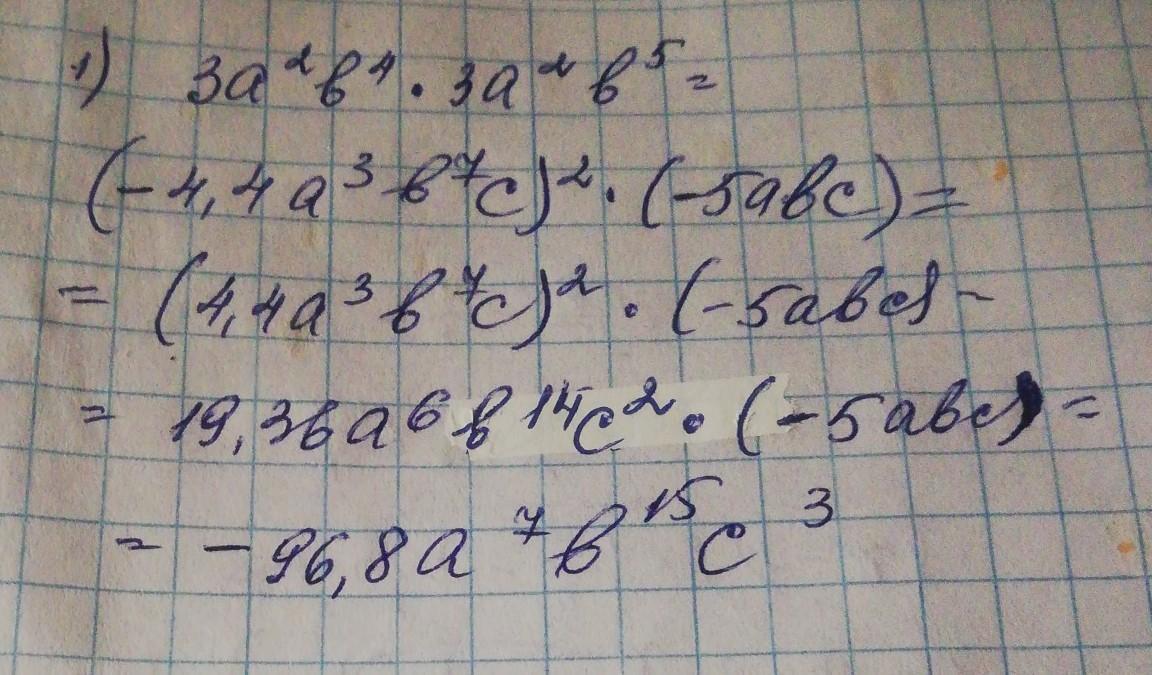 1) 3a²b⁴ · 3a² b⁵ =
(-4,4a³b⁷c)² · (-5abc) =
= (4,4a³b⁷c)² · (-5abc) -
= 19,36a⁶b¹⁴c² · (-5abc) =
= -96,8a⁷b¹⁵c³